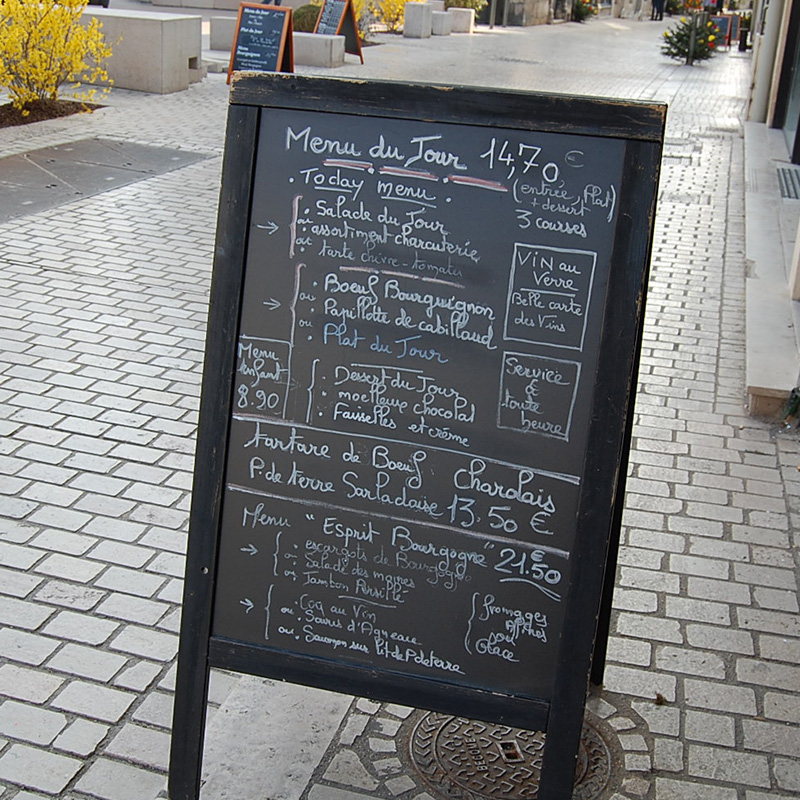 Menu du Jour 14,70 €
(entrée, Plat
+ dessert)
3 courses
. Today menu .
→ . Salade du Jour
ou . assortiment charcuterie
ou . tarte chèvre-tomates
ViN au
Verre
Belle carte
des Vins
→ . Boeuf Bourguignon
ou . Papillotte de cabillaud
ou Plat du Jour
Menu
Enfant
8.90
Service
à
toute
heure
. Dessert du Jour
. moelleux chocolat
. Faisselles et crème
tartare de Boeuf Charolais
P. de terre Sarladaise 13,50 €
Menu "Esprit Bourgogne" 21.50 €
→ . escargots de Bourgogne
ou . Salade des moines
ou . Jambon Persillé
→ . Coq au Vin
ou . Souris d'Agneau
ou . Saumon sur Lit de P. de terre
fromages
Affinés
sou
Glace